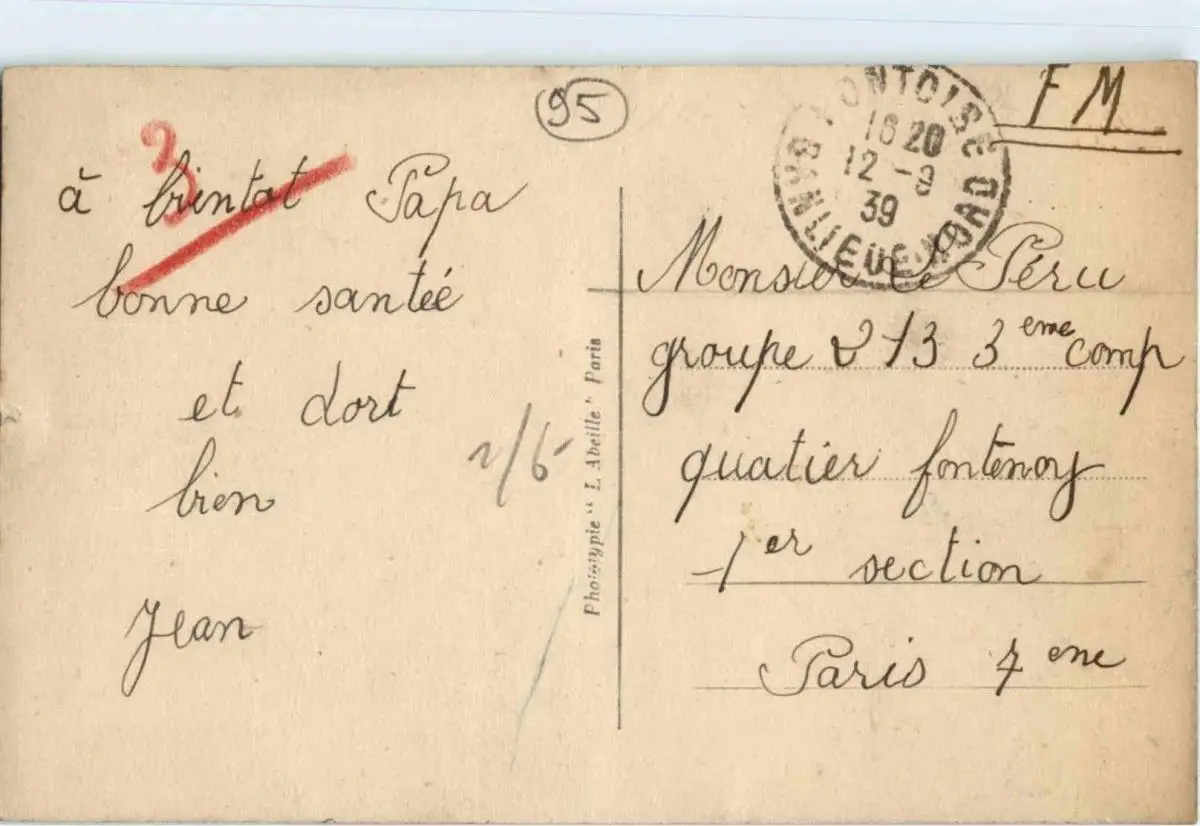 95
F M
PONTOISE
16 20
12 - 9
39
BANLIEUE NORD
3
à bientat Papa
bonne santée
et dort
bien
Jean
Phototypie "L'Abeille" Paris
Monsieur Le Péru
groupe 213 3eme comp
quatier fontenoy
1er section
Paris 7eme